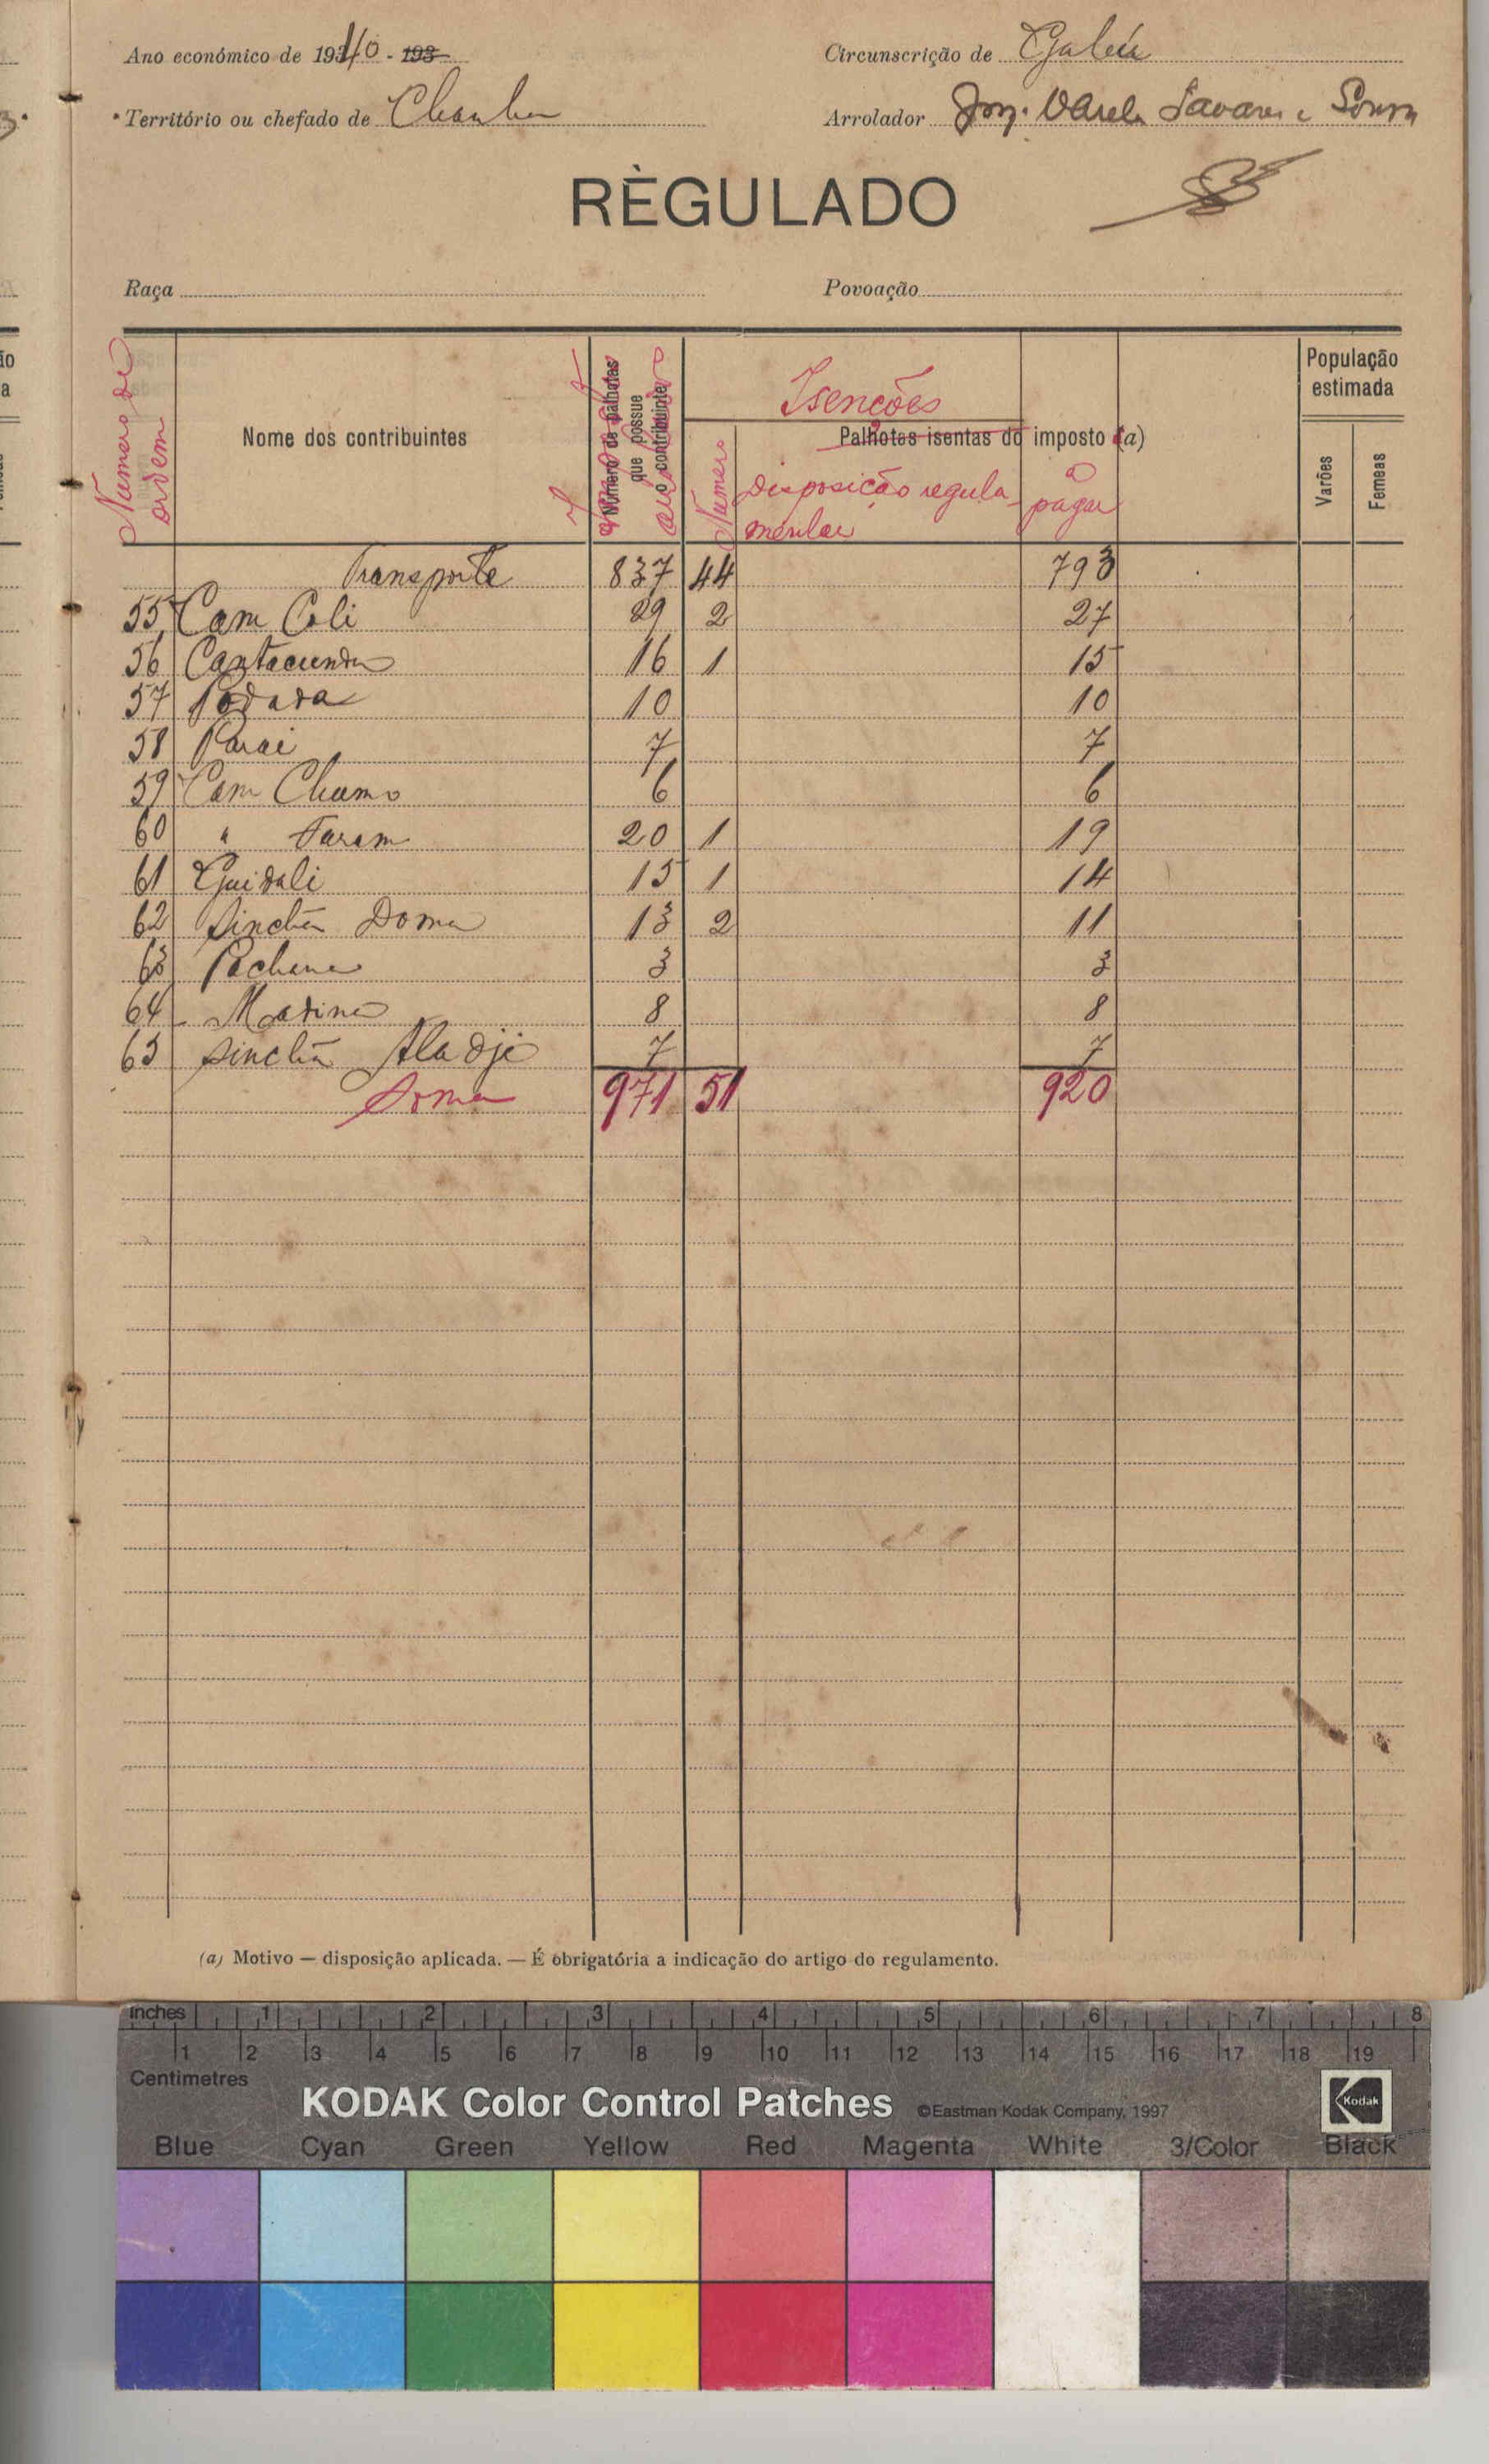 Ano económico de 1940 - 193
Circunscrição de Gabú
Território ou chefado de Chanha
Arrolador Varela Tavares e Sousa
RÈGULADO
Raça
Povoação
Numero de ordem
Nome dos contribuintes
Número de palhotas que possue o contribuinte
Isenções
Palhotas isentas do imposto (a)
Numero
Disposição regula
mentar
a pagar
População estimada
Varões
Femeas
Transporte 837 44 793
55 Cam Coli 29 2 27
56 Cantacunda 16 1 15
57 Padada 10 10
58 Parai 7 7
59 Cam Chamo 6 6
60 " Faram 20 1 19
61 Guidali 15 1 14
62 Sinchã Doma 13 2 11
63 Pachana 3 3
64 Madina 8 8
65 Sinchã Aladji 7 7
Soma 971 51 920
(a) Motivo — disposição aplicada. — É obrigatória a indicação do artigo do regulamento.
inches 1 2 3 4 5 6 7 8
1 2 3 4 5 6 7 8 9 10 11 12 13 14 15 16 17 18 19
Centimetres
KODAK Color Control Patches ©Eastman Kodak Company, 1997 Kodak
Blue Cyan Green Yellow Red Magenta White 3/Color Black